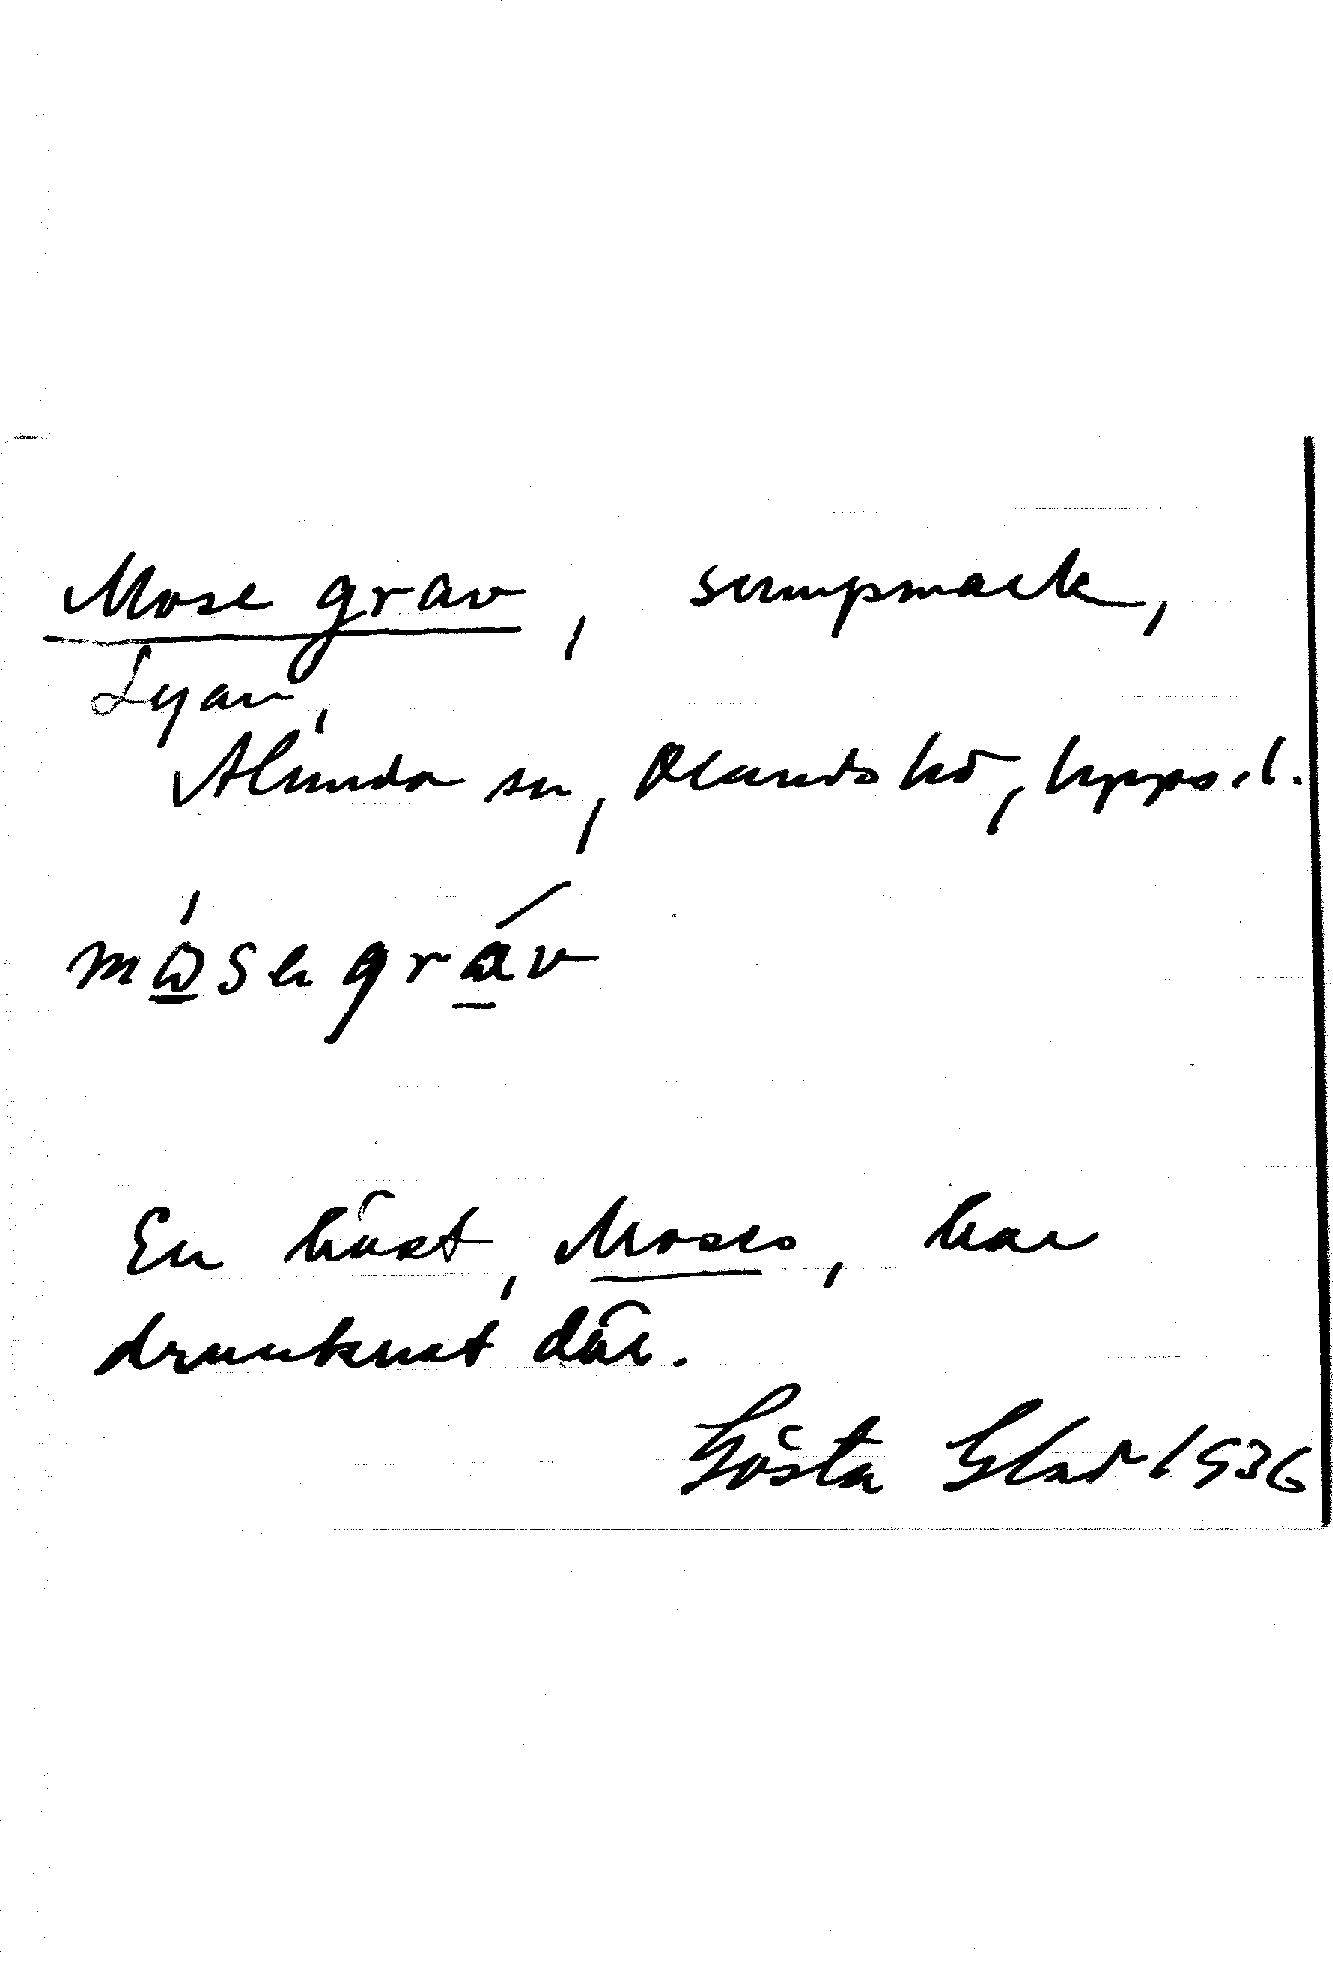 Mose grav, sumpmark,
Lyan,
Alunda sn, Olands hd, Upps. l.
En häst, Moses, har
drunknat där.
Gösta Glad 1936